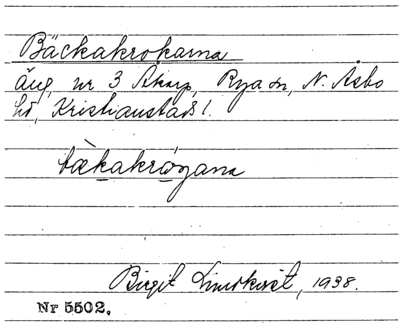 Bäckakrokarna
äng, nr 3 Åkarp, Rya sn, N. Åsbo
hd, Kristianstads l.
bækakrógana
Birgit Lindkvist, 1938.
Nr 5502.